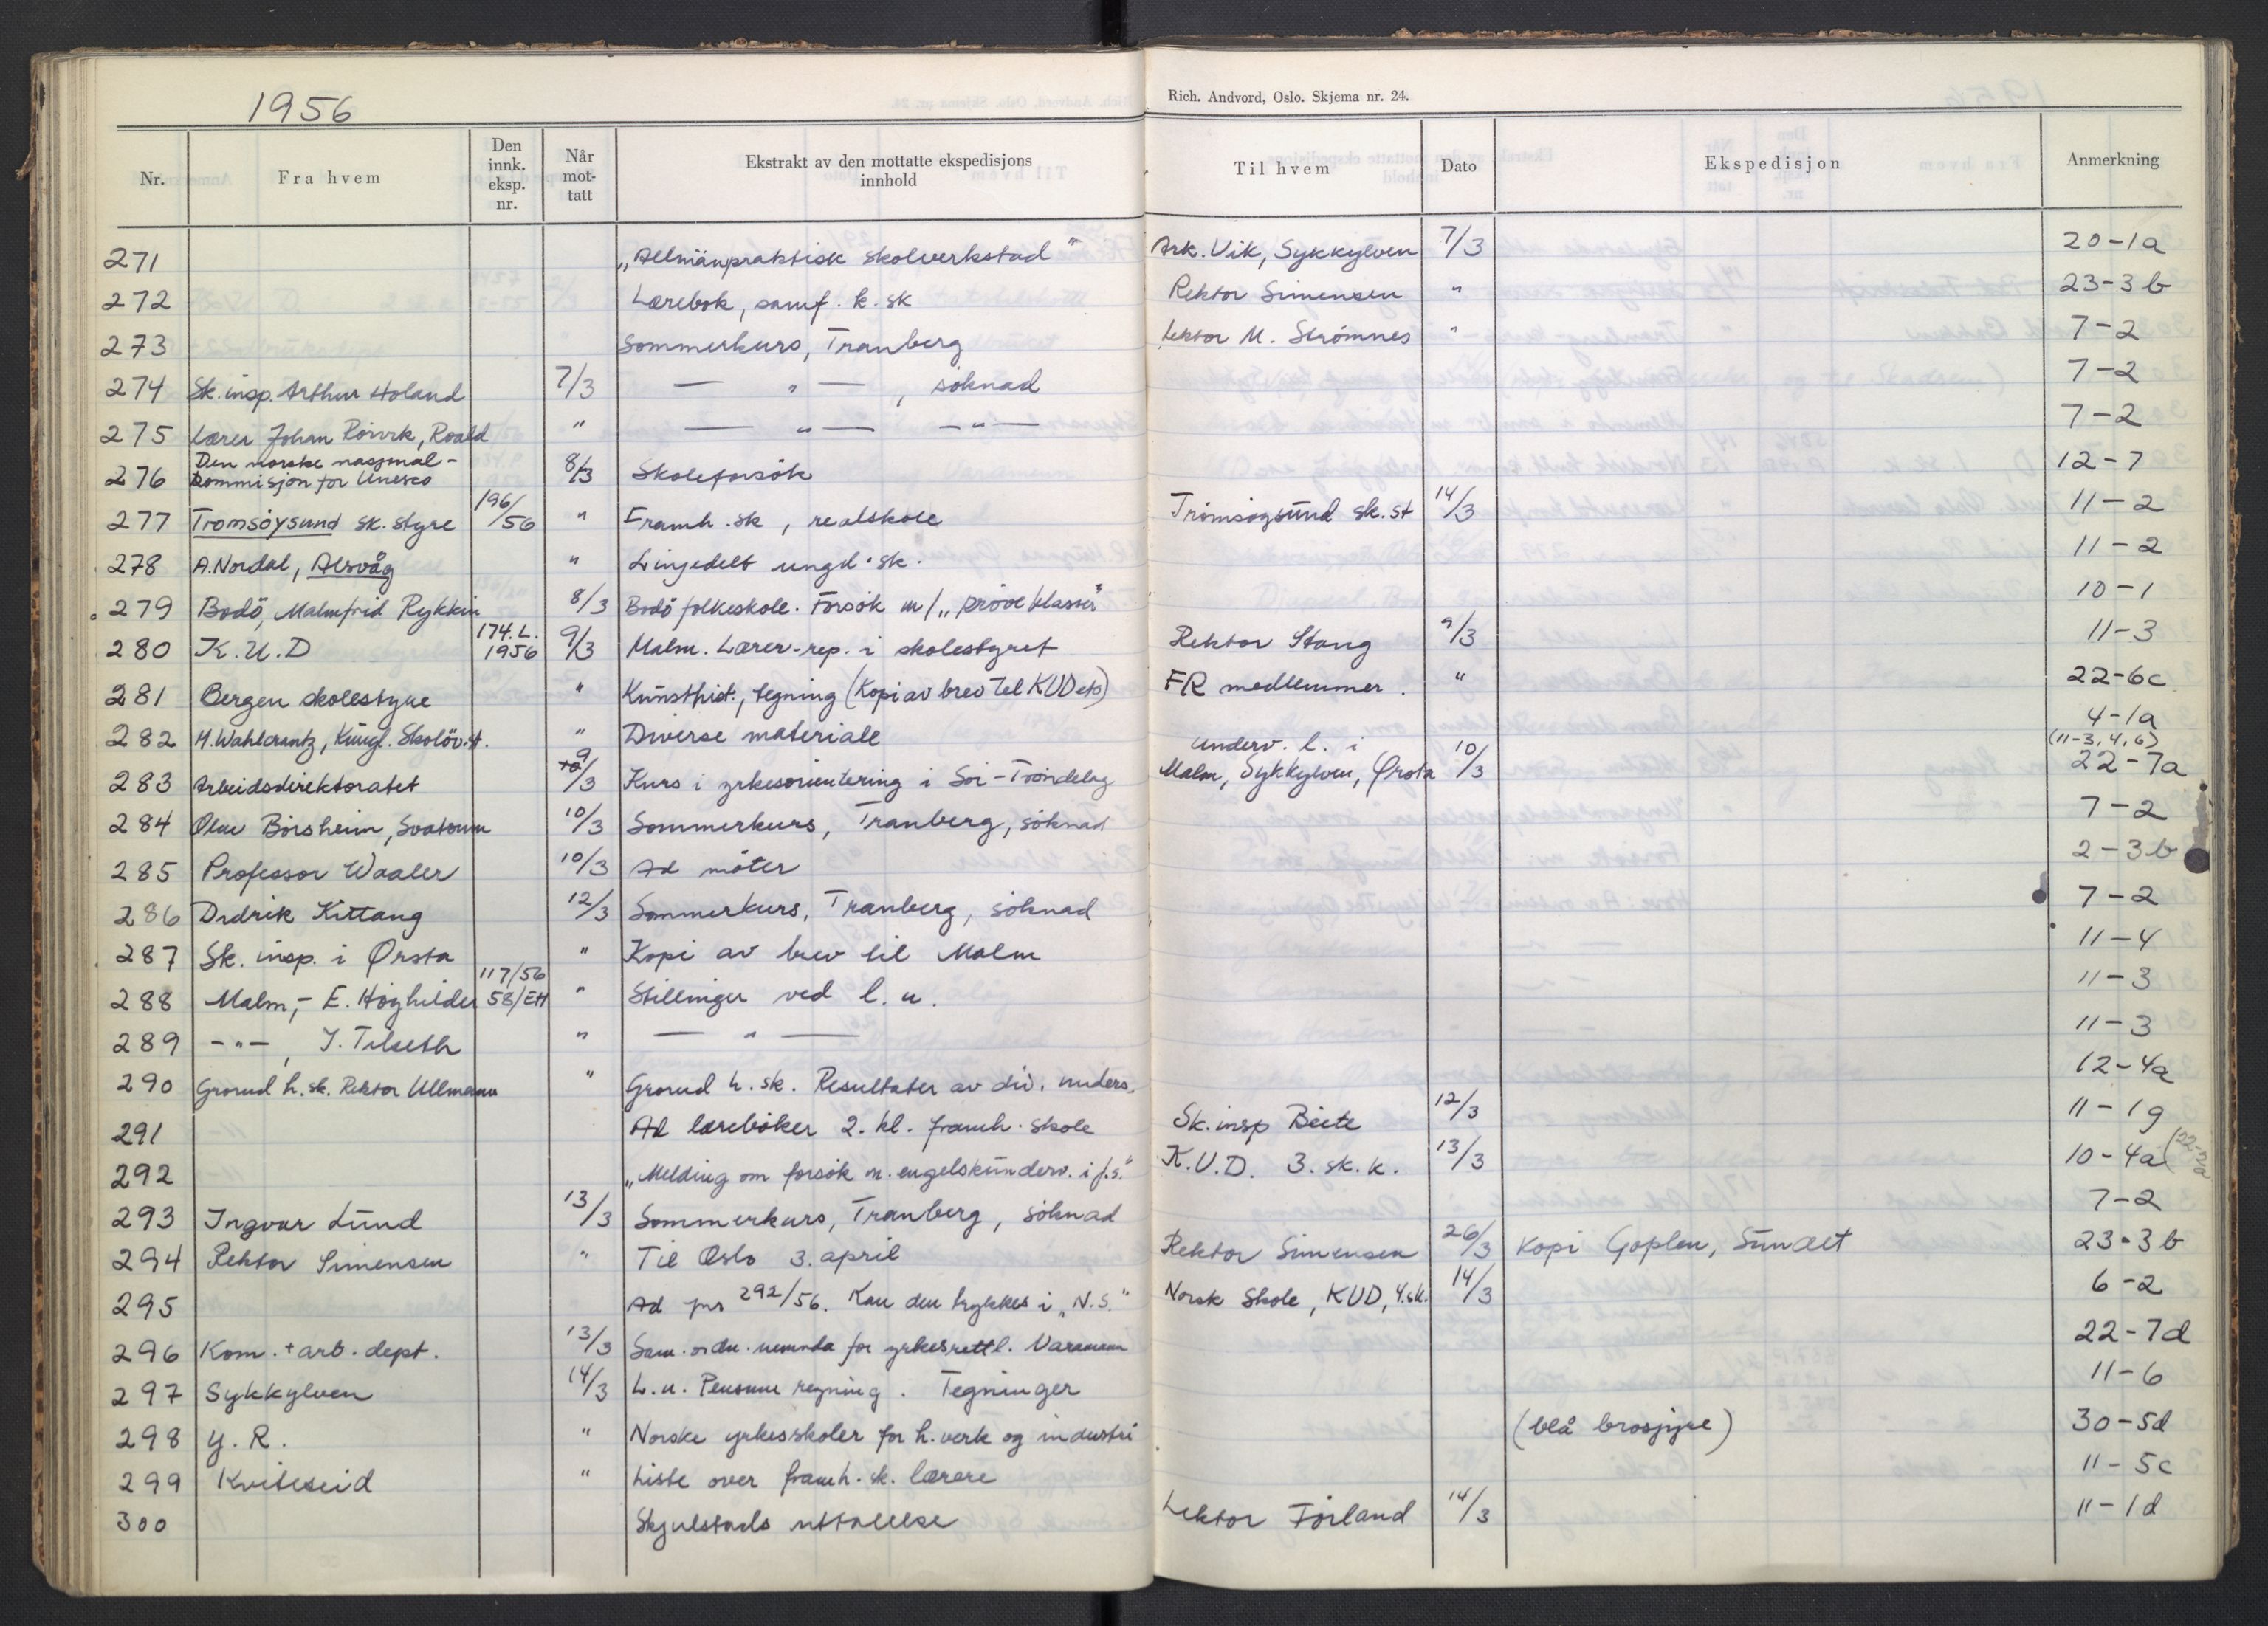 1956
Rich. Andvord, Oslo. Skjema nr. 24.
Nr. Fra hvem Den innk. eksp. nr. Når mot- tatt Ekstrakt av den mottatte ekspedisjons innhold Til hvem Dato Ekspedisjon Anmerkning
271 „Allmänpraktisk skolverkstad" Ark. Vik, Sykkylven 7/3 20-1a
272 Lærebok, samf. k. sk Rektor Simensen " 23-3b
273 Sommerkurs, Tranberg Lektor M. Strømnes " 7-2
274 Sk. insp. Arthur Holand 7/3 — " — , söknad 7-2
275 Lærer Johan Roald " — " — — " — 7-2
276 Den norske nasjonal- kommisjon for Unesco 8/3 Skoleforsök 12-7
277 Tromsöysund sk. styre 196/56 " Framh. sk, realskole Tromsöysund sk. st 14/3 11-2
278 A. Nordal, Alsvåg " Linjedelt ungd. sk. 11-2
279 Bodö, Malmfrid Rykkin 8/3 Bodö folkeskole. Forsök m/„pröveklasser" 10-1
280 K.U.D 174.L. 1956 9/3 Malm. Lærer-rep. i skolestyret Rektor Stang 9/3 11-3
281 Bergen skolestyre " Kunsthist., tegning (Kopi av brev til KUD etc) FR medlemmer. " 22-6c
282 M. Wahlcrantz, Kungl. Skolöv.st. " Diverse materiale 4-1a (11-3,4,6)
283 Arbeidsdirektoratet 9/3 Kurs i yrkesorientering i Sör-Tröndelag underv. l. i Malm, Sykkylven, Ørsta 10/3 22-7a
284 Olav Börsheim, 10/3 Sommerkurs, Tranberg, söknad 7-2
285 Professor Waaler 10/3 Ad möter 2-3b
286 Didrik Kittang 12/3 Sommerkurs, Tranberg, söknad 7-2
287 Sk. insp. i Ørsta " Kopi av brev til Malm 11-4
288 Malm,- E. Höghilder 117/56 58/EH " Stillinger ved l.u. 11-3
289 -"-, J. Tilseth " — " — 11-3
290 Grorud h. sk. Rektor Ullmann " Grorud h. sk. Resultater av div. unders. 12-4a
291 Ad læreböker 2. kl. framh. skole Sk. insp Beite 12/3 11-1g
292 „Melding om forsök m. engelskunderv. i f.s." K.U.D. 3. sk. k. 13/3 10-4a (22-2a
293 Ingvar Lund 13/3 Sommerkurs, Tranberg, söknad 7-2
294 Rektor Simensen " Til Oslo 3. april Rektor Simensen 26/3 Kopi Goplen, Sundet 23-3b
295 Ad jnr 292/56. Kan den trykkes i „N.S." Norsk Skole, KUD, 4.sk. 14/3 6-2
296 Kom. + arb. dept. 13/3 Sam. ordn. nemnda for yrkesrettl. Varamann 22-7d
297 Sykkylven 14/3 L.u. Pensum regning. Tegninger 11-6
298 Y.R. " Norske yrkesskoler for h.verk og industri (blå brosjyre) 30-5d
299 Kviteseid " Liste over framh. sk. lærere 11-5c
300 Skjulstads uttalelse Lektor Förland 14/3 11-1d